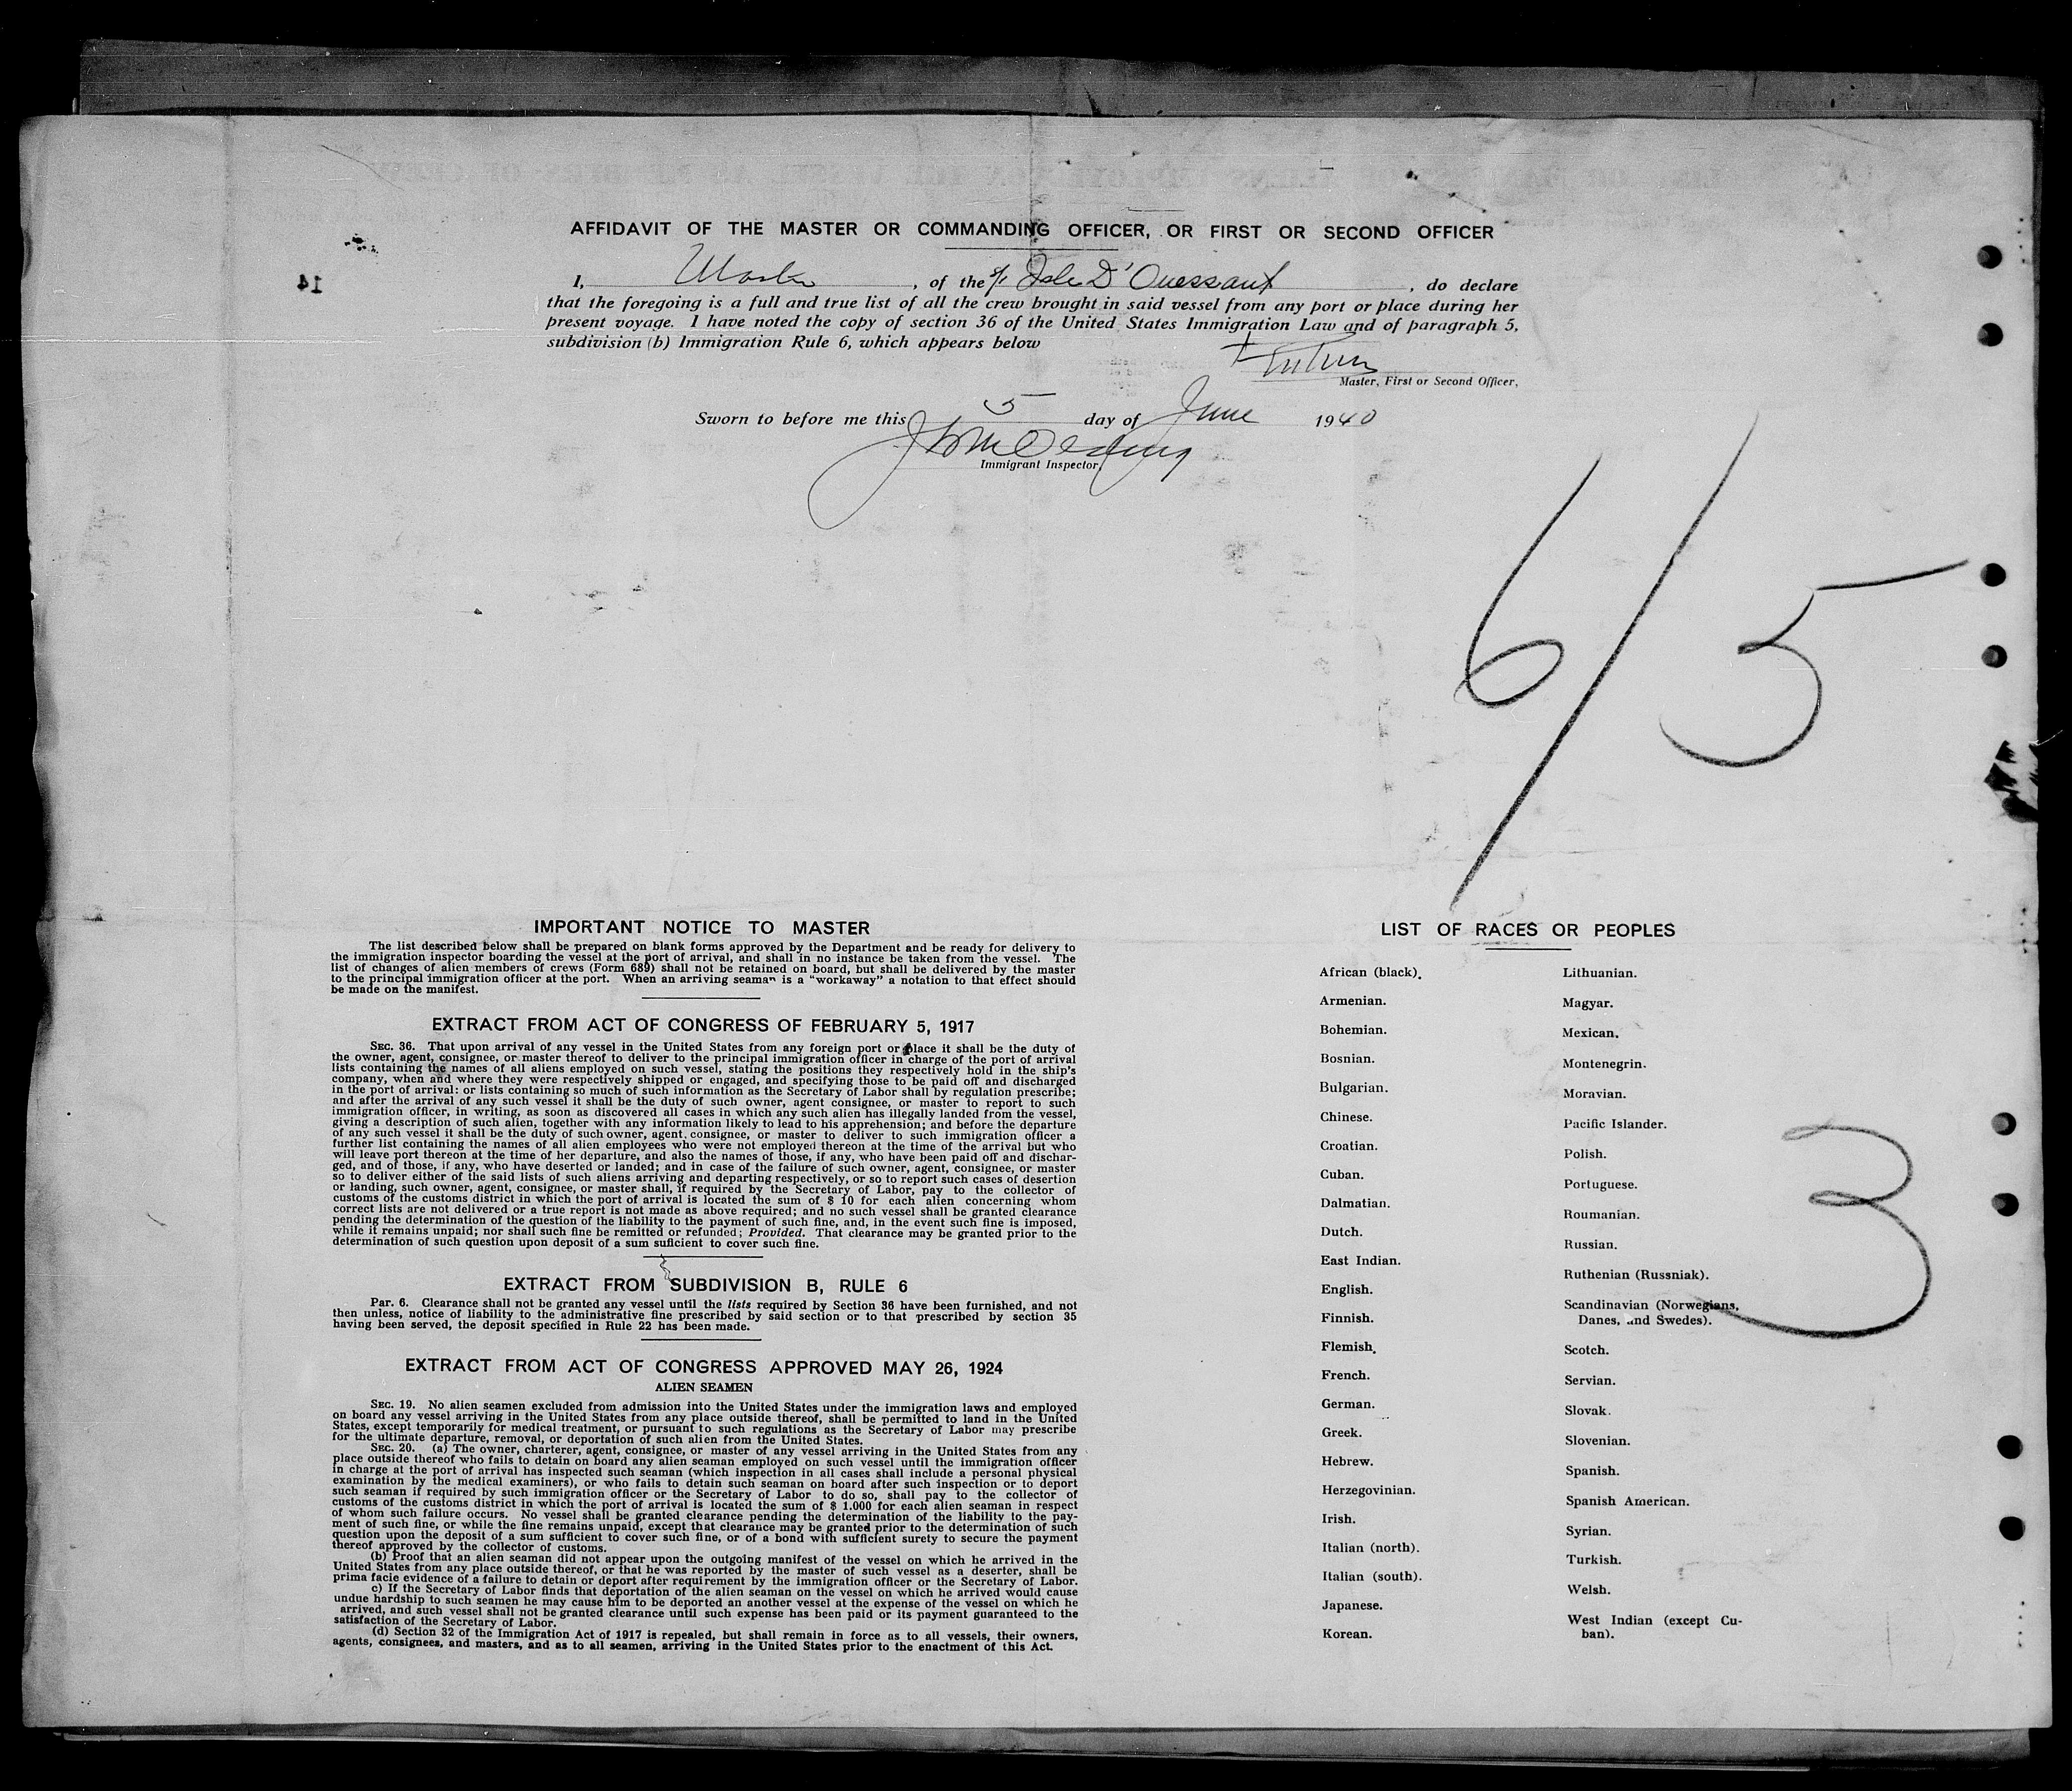 AFFIDAVIT OF THE MASTER OR COMMANDING OFFICER, OR FIRST OR SECOND OFFICER
I, Master, of the Isle D'Ouessant, do declare
that the foregoing is a full and true list of all the crew brought in said vessel from any port or place during her
present voyage. I have noted the copy of section 36 of the United States Immigration Law and of paragraph 5,
subdivision (b) Immigration Rule 6, which appears below
Master, First or Second Officer,
Sworn to before me this 5 day of June 1940
Immigrant Inspector,
14
6/5
IMPORTANT NOTICE TO MASTER
The list described below shall be prepared on blank forms approved by the Department and be ready for delivery to
the immigration inspector boarding the vessel at the port of arrival, and shall in no instance be taken from the vessel. The
list of changes of alien members of crews (Form 689) shall not be retained on board, but shall be delivered by the master
to the principal immigration officer at the port. When an arriving seaman is a "workaway" a notation to that effect should
be made on the manifest.
EXTRACT FROM ACT OF CONGRESS OF FEBRUARY 5, 1917
SEC. 36. That upon arrival of any vessel in the United States from any foreign port or place it shall be the duty of
the owner, agent, consignee, or master thereof to deliver to the principal immigration officer in charge of the port of arrival
lists containing the names of all aliens employed on such vessel, stating the positions they respectively hold in the ship's
company, when and where they were respectively shipped or engaged, and specifying those to be paid off and discharged
in the port of arrival: or lists containing so much of such information as the Secretary of Labor shall by regulation prescribe;
and after the arrival of any such vessel it shall be the duty of such owner, agent consignee, or master to report to such
immigration officer, in writing, as soon as discovered all cases in which any such alien has illegally landed from the vessel,
giving a description of such alien, together with any information likely to lead to his apprehension; and before the departure
of any such vessel it shall be the duty of such owner, agent, consignee, or master to deliver to such immigration officer a
further list containing the names of all alien employees who were not employed thereon at the time of the arrival but who
will leave port thereon at the time of her departure, and also the names of those, if any, who have been paid off and dischar-
ged, and of those, if any, who have deserted or landed; and in case of the failure of such owner, agent, consignee, or master
so to deliver either of the said lists of such aliens arriving and departing respectively, or so to report such cases of desertion
or landing, such owner, agent, consignee, or master shall, if required by the Secretary of Labor, pay to the collector of
customs of the customs district in which the port of arrival is located the sum of $ 10 for each alien concerning whom
correct lists are not delivered or a true report is not made as above required; and no such vessel shall be granted clearance
pending the determination of the question of the liability to the payment of such fine, and, in the event such fine is imposed,
while it remains unpaid; nor shall such fine be remitted or refunded; Provided. That clearance may be granted prior to the
determination of such question upon deposit of a sum suficient to cover such fine.
EXTRACT FROM SUBDIVISION B, RULE 6
Par. 6. Clearance shall not be granted any vessel until the lists required by Section 36 have been furnished, and not
then unless, notice of liability to the administrative fine prescribed by said section or to that prescribed by section 35
having been served, the deposit specified in Rule 22 has been made.
EXTRACT FROM ACT OF CONGRESS APPROVED MAY 26, 1924
ALIEN SEAMEN
SEC. 19. No alien seamen excluded from admission into the United States under the immigration laws and employed
on board any vessel arriving in the United States from any place outside thereof, shall be permitted to land in the United
States, except temporarily for medical treatment, or pursuant to such regulations as the Secretary of Labor may prescribe
for the ultimate departure, removal, or deportation of such alien from the United States.
SEC. 20. (a) The owner, charterer, agent, consignee, or master of any vessel arriving in the United States from any
place outside thereof who fails to detain on board any alien seaman employed on such vessel until the immigration officer
in charge at the port of arrival has inspected such seaman (which inspection in all cases shall include a personal physical
examination by the medical examiners), or who fails to detain such seaman on board after such inspection or to deport
such seaman if required by such immigration officer or the Secretary of Labor to do so, shall pay to the collector of
customs of the customs district in which the port of arrival is located the sum of $ 1.000 for each alien seaman in respect
of whom such failure occurs. No vessel shall be granted clearance pending the determination of the liability to the pay-
ment of such fine, or while the fine remains unpaid, except that clearance may be granted prior to the determination of such
question upon the deposit of a sum sufficient to cover such fine, or of a bond with sufficient surety to secure the payment
thereof approved by the collector of customs.
(b) Proof that an alien seaman did not appear upon the outgoing manifest of the vessel on which he arrived in the
United States from any place outside thereof, or that he was reported by the master of such vessel as a deserter, shall be
prima facie evidence of a failure to detain or deport after requirement by the immigration officer or the Secretary of Labor.
c) If the Secretary of Labor finds that deportation of the alien seaman on the vessel on which he arrived would cause
undue hardship to such seamen he may cause him to be deported an another vessel at the expense of the vessel on which he
arrived, and such vessel shall not be granted clearance until such expense has been paid or its payment guaranteed to the
satisfaction of the Secretary of Labor.
(d) Section 32 of the Immigration Act of 1917 is repealed, but shall remain in force as to all vessels, their owners,
agents, consignees, and masters, and as to all seamen, arriving in the United States prior to the enactment of this Act.
LIST OF RACES OR PEOPLES
African (black).
Armenian.
Bohemian.
Bosnian.
Bulgarian.
Chinese.
Croatian.
Cuban.
Dalmatian.
Dutch.
East Indian.
English.
Finnish.
Flemish.
French.
German.
Greek.
Hebrew.
Herzegovinian.
Irish.
Italian (north).
Italian (south).
Japanese.
Korean.
Lithuanian.
Magyar.
Mexican.
Montenegrin.
Moravian.
Pacific Islander.
Polish.
Portuguese.
Roumanian.
Russian.
Ruthenian (Russniak).
Scandinavian (Norwegians,
Danes, and Swedes).
Scotch.
Servian.
Slovak.
Slovenian.
Spanish.
Spanish American.
Syrian.
Turkish.
Welsh.
West Indian (except Cu-
ban).
3